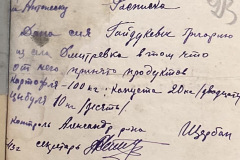 Расписка
Дана сия Гайдукевич Григорию
из с. Дмитревка в том что
от него принято продуктов:
Картофля - 100 кг. Капуста 20 кг /двадцать/
цибуля 10 кг /десять/
Александр. р-на Щербан
секретарь